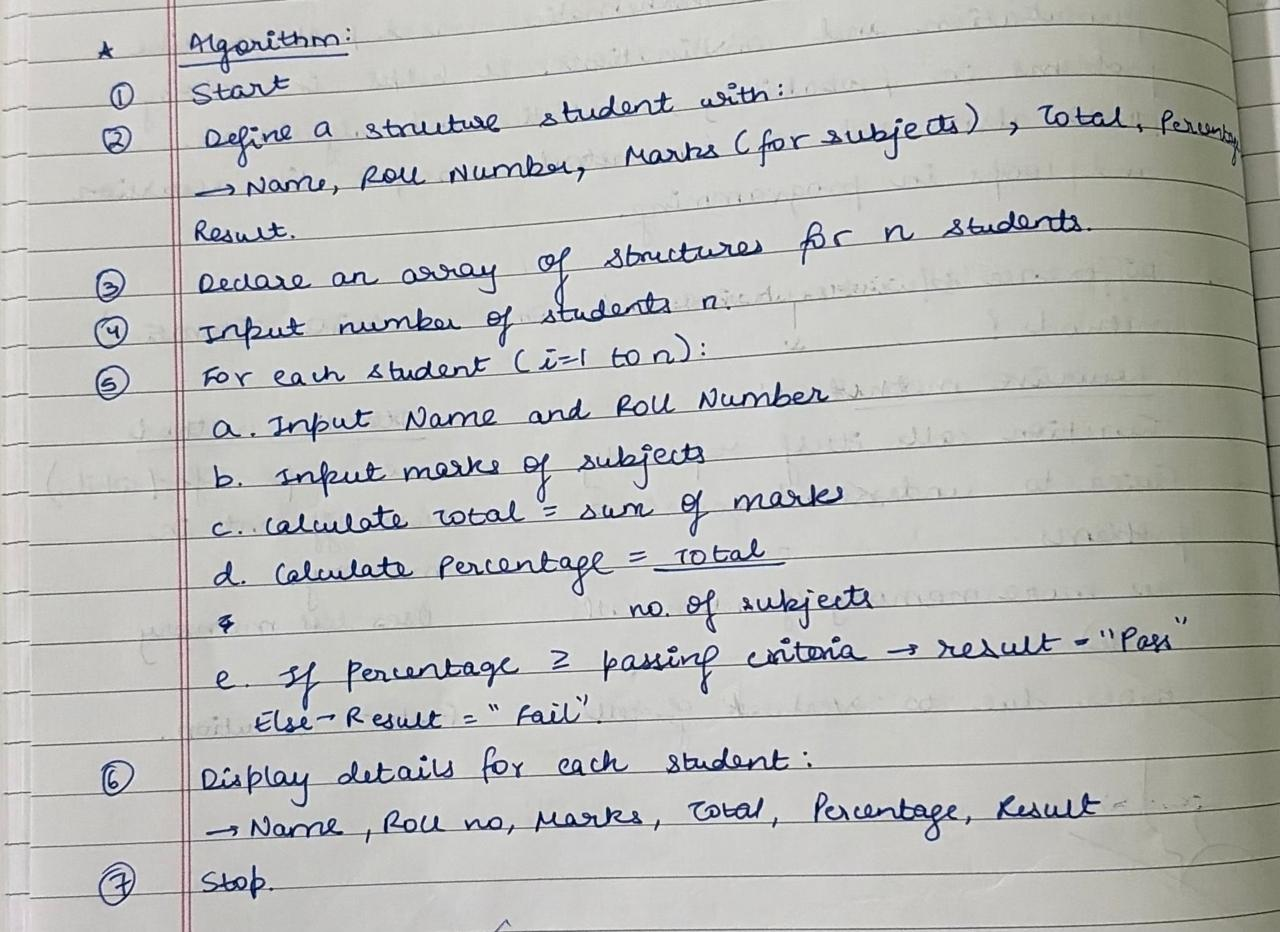 ★ Algorithm:
① Start
② Define a struture student with:
→ Name, Roll Number, Marks (for subjects), Total, Percentage
Result.
③ Declare an array of structures for n students.
④ Input number of students n.
⑤ For each student (i=1 to n):
a. Input Name and Roll Number
b. Input marks of subjects
c. Calculate Total = sum of marks
d. Calculate Percentage = Total
no. of subjects
e. If Percentage ≥ passing criteria → result = "Pass"
Else → Result = "Fail".
⑥ Display details for each student:
→ Name, Roll no, Marks, Total, Percentage, Result
⑦ Stop.